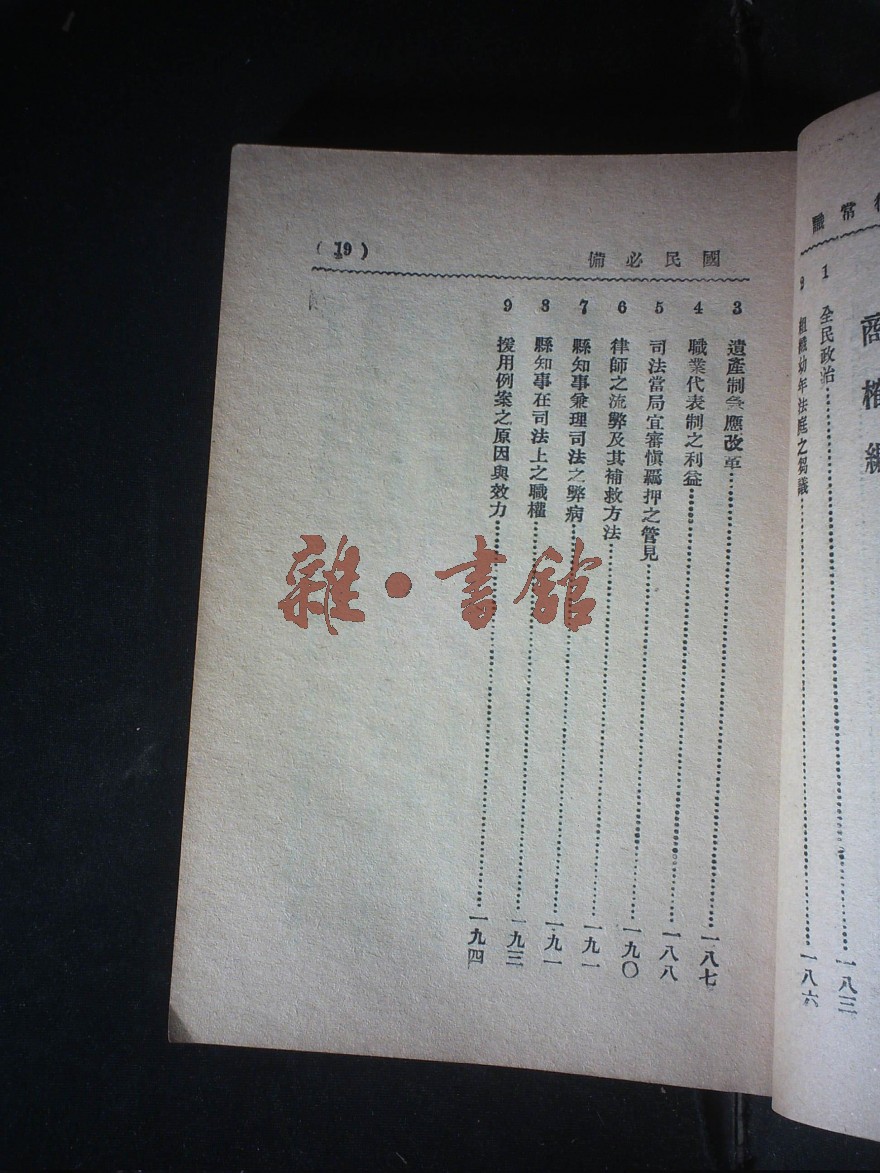 常識
商榷編
1 全民政治……一八三
組織幼年法庭之芻議……一八六
國民必備
(19)
3 遺產制急應改革……一八七
4 職業代表制之利益……一八八
5 司法當局宜審慎羈押之管見……一九〇
6 律師之流弊及其補救方法……一九一
7 縣知事兼理司法之弊病……一九一
8 縣知事在司法上之職權……一九三
9 援用例案之原因與效力……一九四
雜·書館